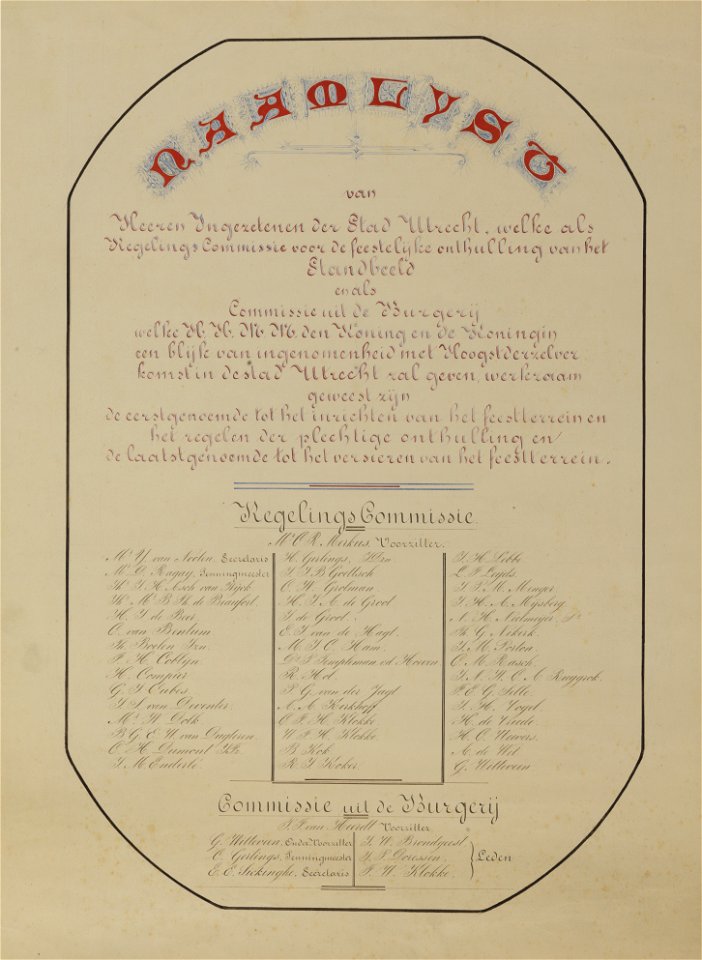 NAAMLYST
van
Heeren Ingezetenen der Stad Utrecht, welke als
Regelings Commissie voor de feestelijke onthulling van het
Standbeeld
en als
Commissie uit de Burgerij
welke H. H. M. M. den Koning en de Koningin
een blijke van ingenomenheid met Hoogstderzelver
komst in de stad Utrecht zal geven, werkzaam
geweest zijn
de eerstgenoemde tot het inrichten van het feestterrein en
het regelen der plechtige onthulling en
de laatstgenoemde tot het versieren van het feestterrein.
Regelings Commissie.
Mr. C. R. Merkus, Voorzitter.
Secretaris
Mr. D. Ragay, Penningmeester
Asch van Wijck
de Beaufort.
H. J. de Beer
C. van Bentum
Th. Boelen
P. H. Coblijn
H. Compier
G. J. Cubes
van Deventer
Mr. W. Dolk
B. G. E. W. van Druten
C. H. Dumont
J. M. Enderlé
H. Gerlings,
Goettsch
C. W. Grolman
H. J. A. de Groot
J. de Groot
E. J. van de Hagt
M. J. C. Ham
Templeman v.d. Hoeven
R. Hol
P. G. van der Jagt
A. A. Kerkhoff
C. P. H. Klokke
W. P. H. Klokke
B. Kok
R. J. Koker
J. H. Libbe
Leyds
Menger
J. H. A. Mijsberg
N. H. Nieumeijer
Th. G. Nikerk
J. M. Porton
C. M. Rasch
Ruijgrok
P. E. G. Sille
J. H. Vogel
H. de Vrede
H. C. Wewers
A. de Wit
G. Witteveen
Commissie uit de Burgerij
van Hierdt Voorzitter
G. Witteveen, Onder-Voorzitter
C. Gerlings, Penningmeester
E. E. Stekinghe, Secretaris
J. W. Brondgeest
Driessen
P. W. Klokke
Leden